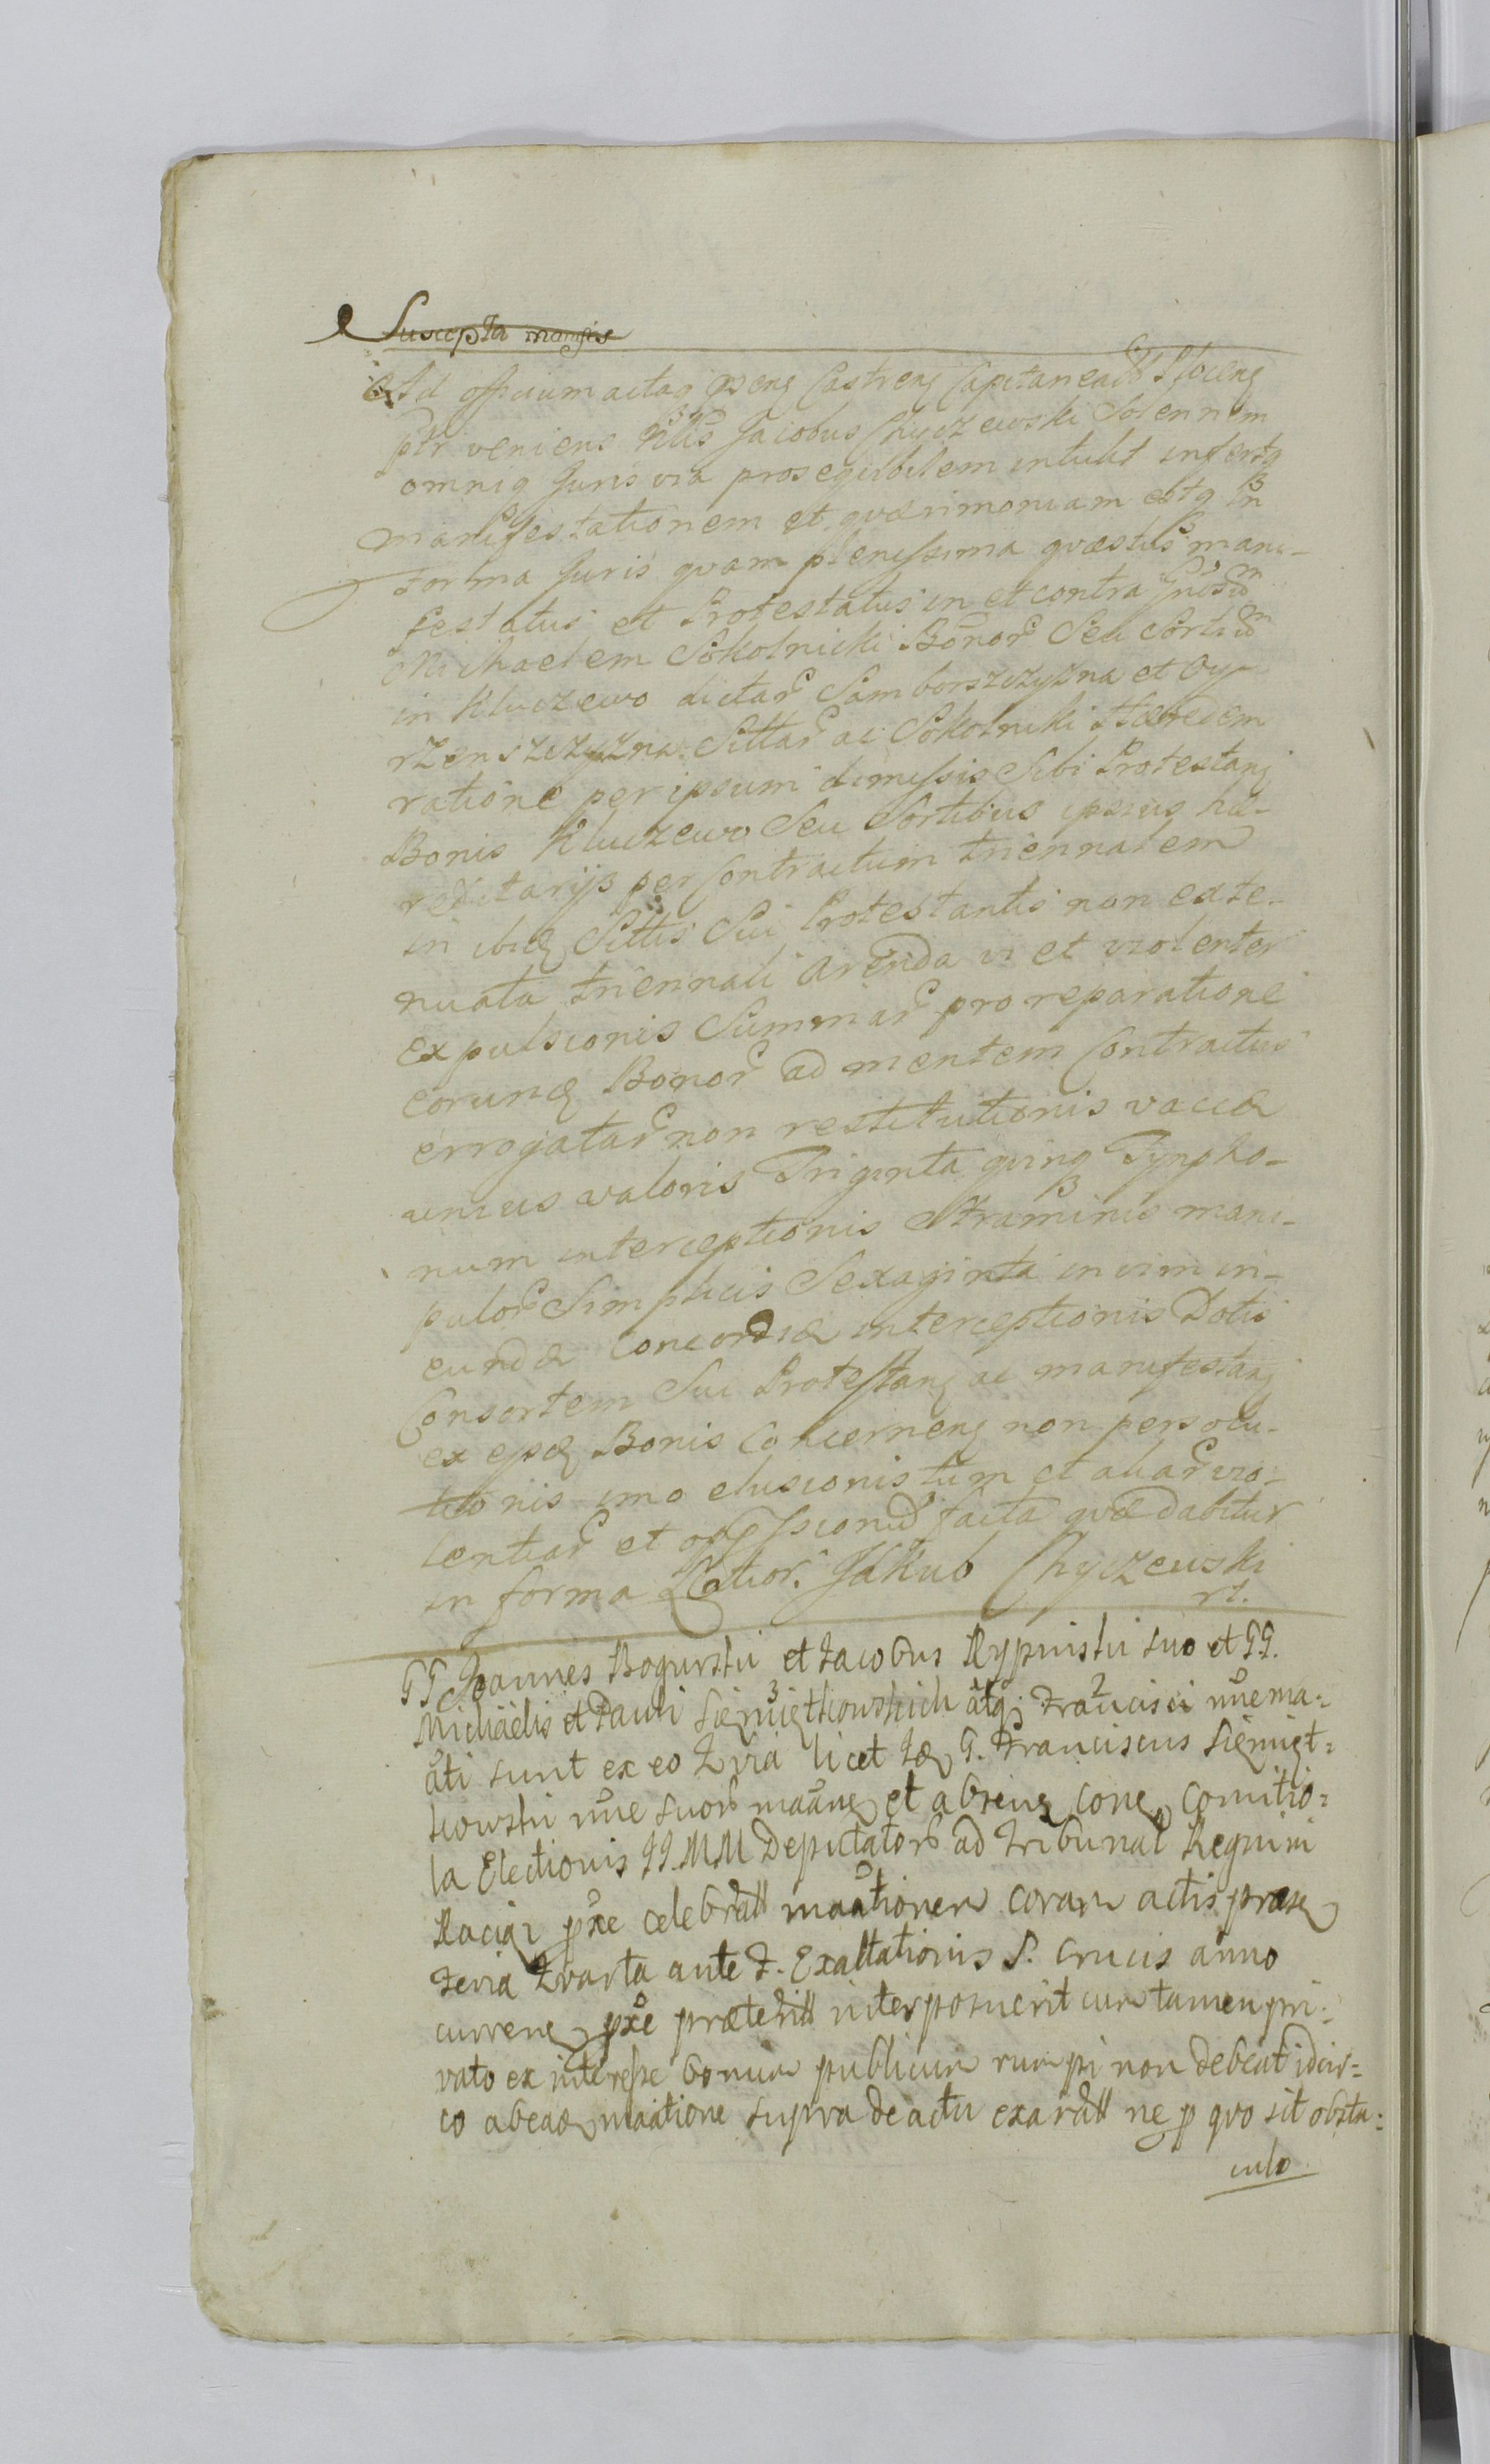 Suscepta manifes
Ad officium actaq pseng Castreng Capitanealia Ploceng
psolr veniens Nblis Jacobus Chyczewski Solennem
omniq Juris via proseqvibilem intulit infertq
manifestationem et qværimoniam estq in
forma Juris qvam plenissima qvæstus mani-
festatus et Protestatus in et contra Gnosum
Michaelem Sokolnicki Bonor Seu Sortium
in Kluczewo dictar Samborszczyzna et Oy-
rzenszczyzna Sittar ac Sokolniki Hæredem
ratione per ipsum dimissis Sibi Protestanj
Bonis Kluczewo Seu Sortibus ipsius hæ-
reditarijs per Contractum triennalem
in ibidq Sittis Sui Protestantis non exte-
nuata triennali arenda vi et violenter
expulsionis Summar pro reparatione
eorundq Bonor ad mentem Contractus
errogatar non restitutionis vaccæ
unius valoris Triginta qvinq Tympho-
num interceptionis Straminis mani-
pulor Simplicis Sexaginta in vim in-
eundæ Concordiæ interceptionis Dotis
Consortem Sui Protestanj ac manifestanj
ex ejsdq Bonis Concerneng non persolu-
tionis imo elusionis tum et aliar vio-
lentiar et oppssionum facta qvæ dabitur
in forma Latior. Jakub Chyczewski
rz.
GG Joannes Bogurski et Jacobus Rypinski suo et GG.
Michäelis et Pauli Siemiętkowskich atq Francisci nne ma=
ati sunt ex eo Qvia licet Idq G. Franciscus Siemięt=
kowski nne suor maaneq et absenq conq Comitio=
la Electionis JJ.MM Deputator ad Tribunal Regni in
Raciąz pxe celebratt maationem coram actis præseq
Feria Qvarta ante F. Exaltationis S. Crucis anno
curreneq pxe præteritt interposuerit cum tamen pri=
vato ex interesse bonum publicum rumpi non debeat idcir=
co ab eadq maatione supra de actu exaratt ne p qvo sit obsta=
culo